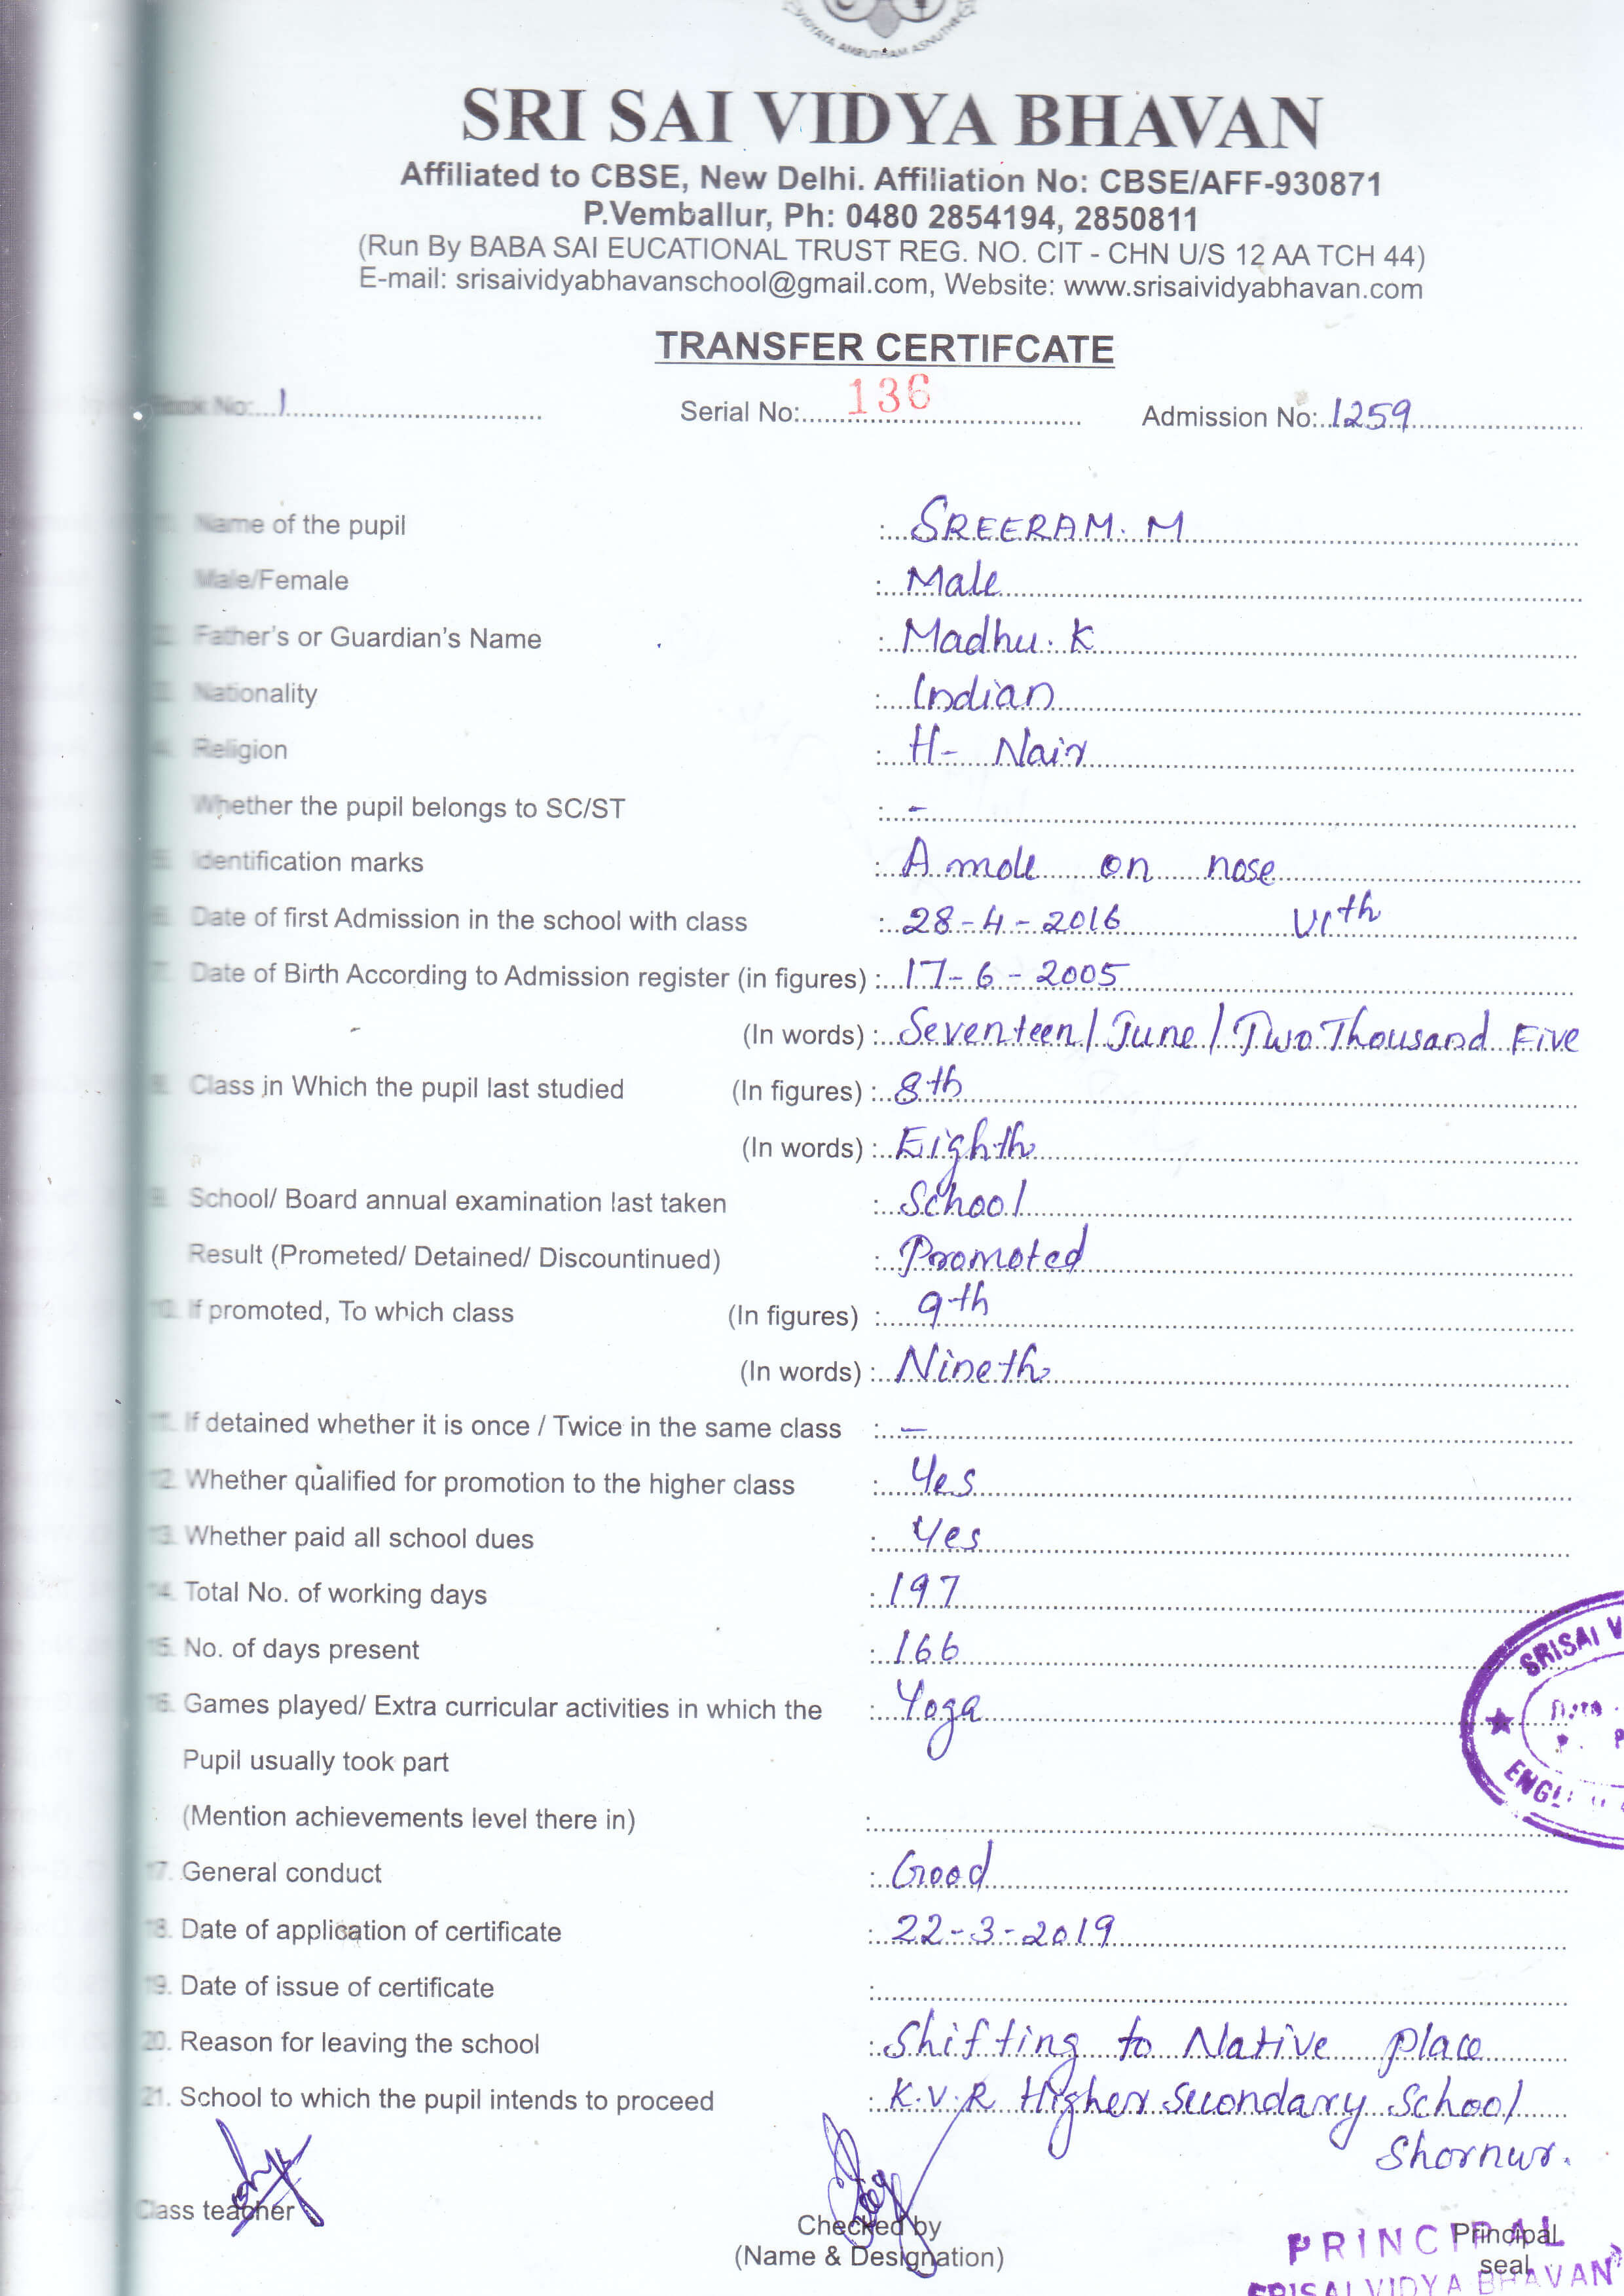 VIDYAYA AMRUTHAM ASNUTHE
SRI SAI VIDYA BHAVAN
Affiliated to CBSE, New Delhi. Affiliation No: CBSE/AFF-930871
P.Vemballur, Ph: 0480 2854194, 2850811
(Run By BABA SAI EUCATIONAL TRUST REG. NO. CIT - CHN U/S 12 AA TCH 44)
E-mail: srisaividyabhavanschool@gmail.com, Website: www.srisaividyabhavan.com
TRANSFER CERTIFCATE
Book No: 1 Serial No: 136 Admission No: 1259
1. Name of the pupil : SREERAM. M
Male/Female : Male
2. Father's or Guardian's Name : Madhu. K
3. Nationality : Indian
4. Religion : H- Nair
Whether the pupil belongs to SC/ST : -
5. Identification marks : A mole on nose
6. Date of first Admission in the school with class : 28-4-2016 VIth
7. Date of Birth According to Admission register (in figures) : 17-6-2005
(In words) : Seventeen/June/Two Thousand Five
8. Class in Which the pupil last studied (In figures) : 8th
(In words) : Eighth
9. School/ Board annual examination last taken : School
Result (Prometed/ Detained/ Discountinued) : Promoted
10. If promoted, To which class (In figures) : 9th
(In words) : Nineth
11. If detained whether it is once / Twice in the same class : -
12. Whether qualified for promotion to the higher class : Yes
13. Whether paid all school dues : Yes
14. Total No. of working days : 197
15. No. of days present : 166
16. Games played/ Extra curricular activities in which the : Yoga
Pupil usually took part
(Mention achievements level there in) :
17. General conduct : Good
18. Date of application of certificate : 22-3-2019
19. Date of issue of certificate :
20. Reason for leaving the school : Shifting to Native place
21. School to which the pupil intends to proceed : K.V.R Higher Secondary School
Shornur.
SRISAI V
ENGLI
Class teacher
Checked by
(Name & Designation)
Principal
seal
PRINCIPAL
SRISAI VIDYA BHAVAN